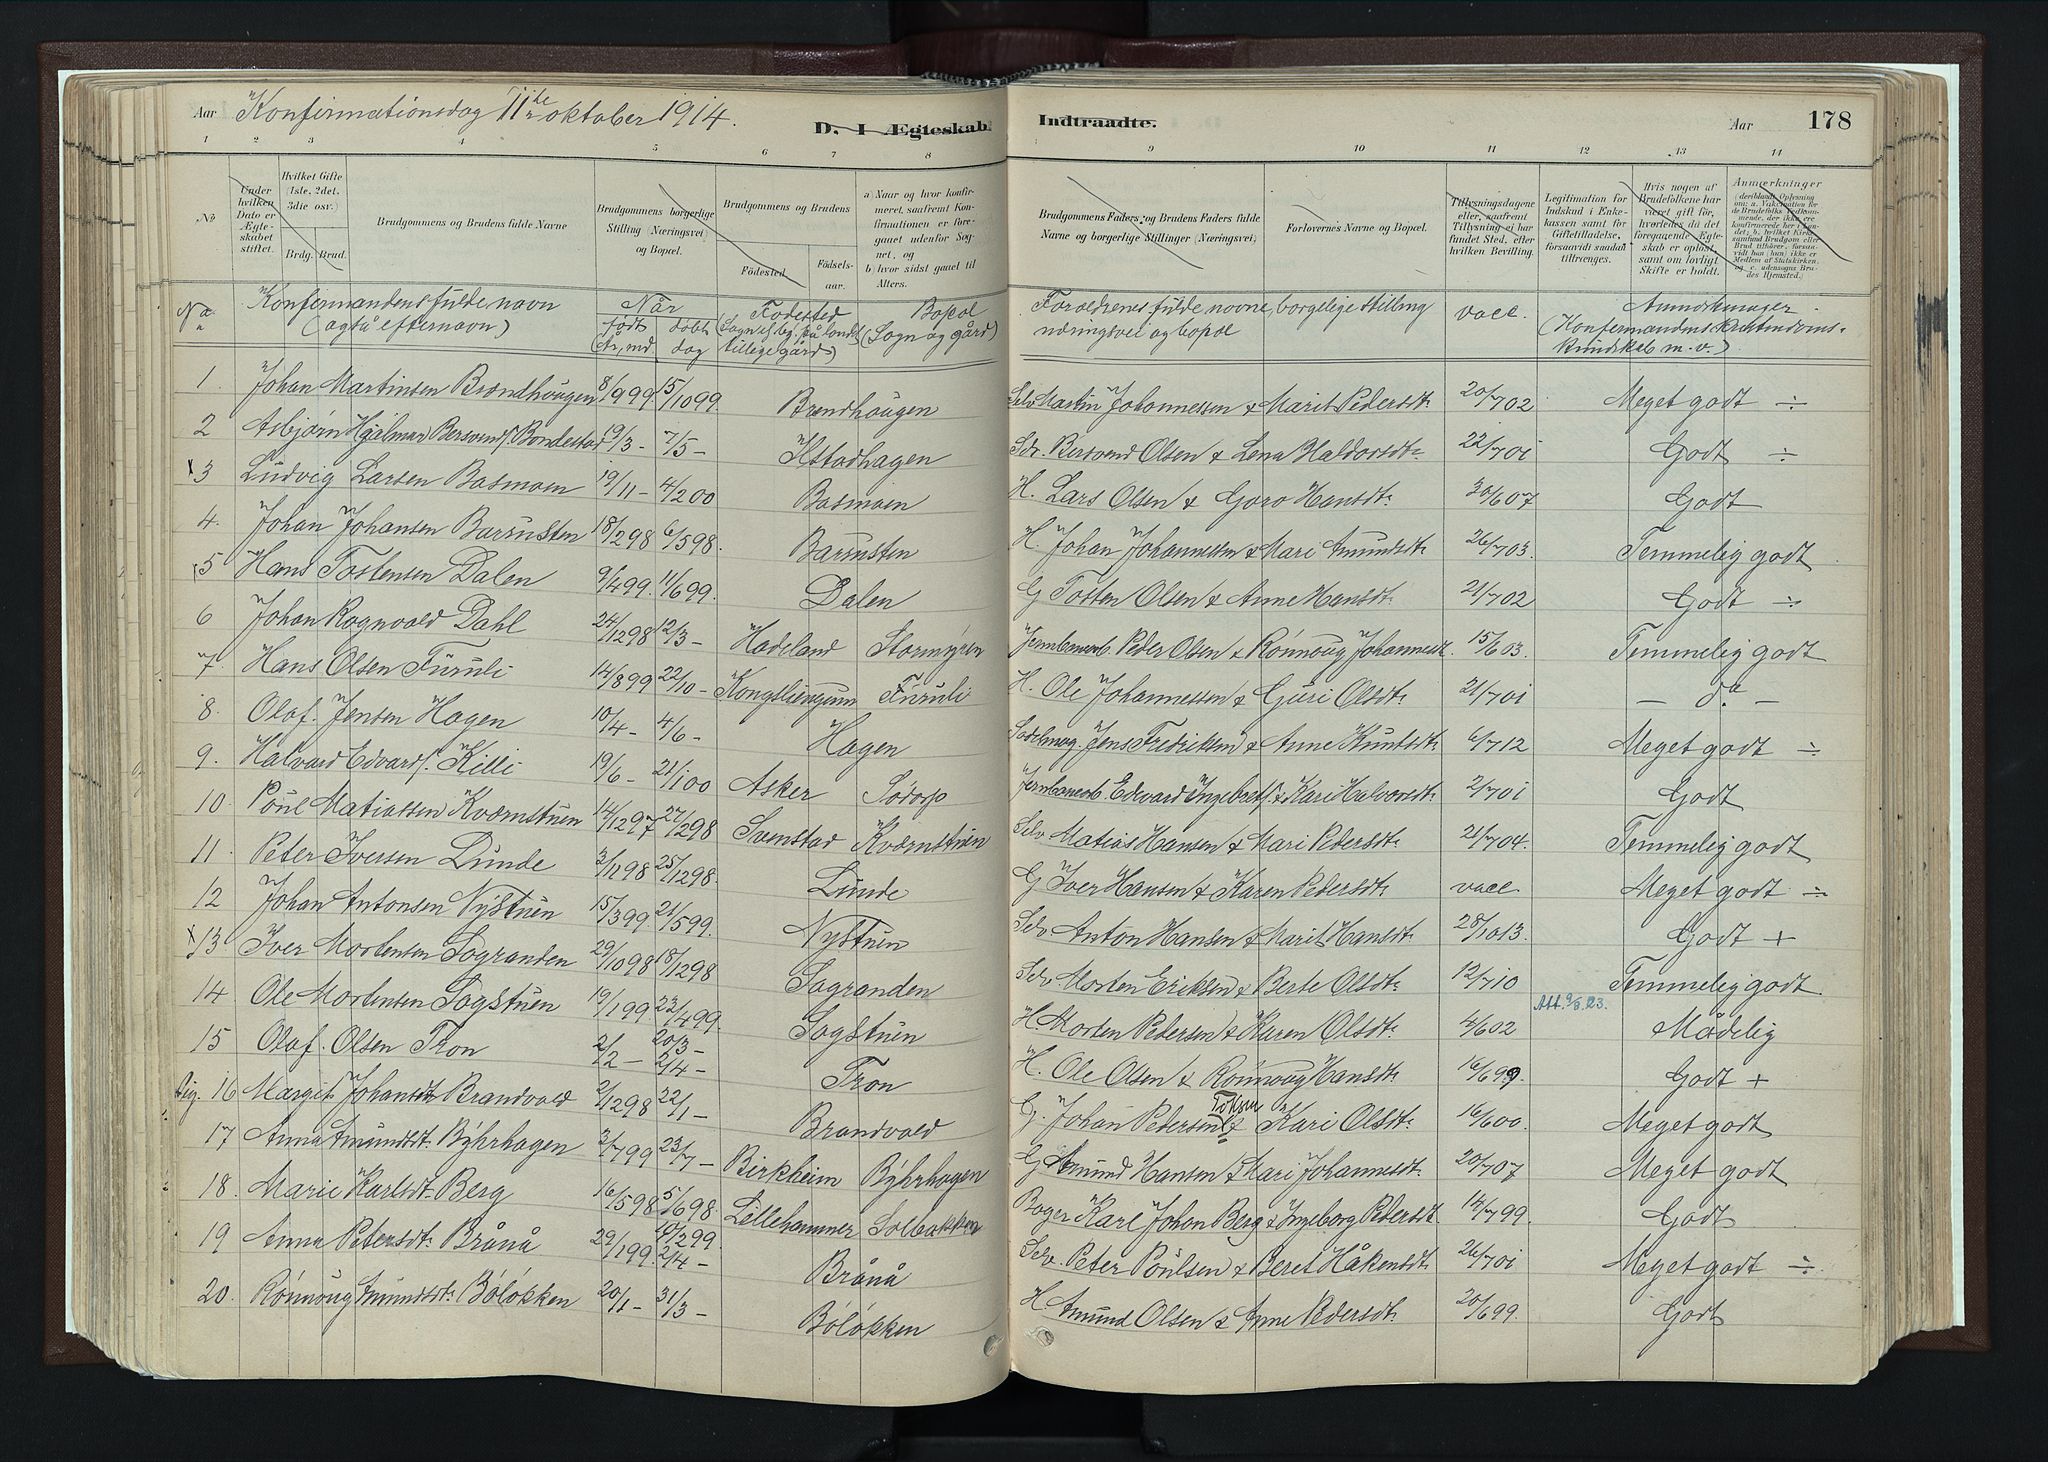 Aar Konfirmationsdag 11te oktober 1914.
D. I Ægteskab Indtraadte. Aar 178
1 2 3 4 5 6 7 8 9 10 11 12 13 14
No
Under hvilken Dato er Ægteskabet stiftet.
Hvilket Gifte (1ste, 2det, 3die osv.)
Brdg. Brud.
Brudgommens og Brudens fulde Navne
Brudgommens borgerlige Stilling (Næringsvei) og Bopæl.
Brudgommens og Brudens
Fødested. Fødselsaar.
a) Naar og hvor konfirmeret, saafremt Konfirmationen er foregaaet udenfor Sognet, og
b) hvor sidst gaaet til Alters.
Brudgommens Faders og Brudens Faders fulde Navne og borgerlige Stillinger (Næringsvei)
Forlovernes Navne og Bopæl.
Tillysningsdagene eller, saafremt Tillysning ei har fundet Sted, efter hvilken Bevilling.
Legitimation for Indskud i Enkekassen samt for Giftetilladelse, forsaavidt saadan tiltrænges.
Hvis nogen af Brudefolkene har været gift før, hvorledes da det foregaaende Ægteskab er opløst, samt om lovligt Skifte er holdt.
Anmærkninger
No. Konfirmandens fulde navn (også efternavn)
Når født År, md døbt dag
Fødested (Sogn el. by, på landet tillige gård)
Bopæl (Sogn og gård)
Forældrenes fulde navne, borgelige stilling næringsvei og bopæl
vacc.
Anmerkninger (Konfirmandens kristendomskundskab m.v.)
1. Johan Martinsen Brændhougen 8/999 15/1099 Brændhougen Selv. Martin Johannessen & Marit Pedersdt. 20/702 Meget godt ÷
2 Asbjørn Hjalmar Bersvends. Bondestad 19/3 - 7/5 - Ilstadhagen Sdr. Bersvend Olsen & Lena Haldorsdt. 22/701 Godt ÷
x3 Ludvig Larsen Basmoen 19/11 - 4/200 Basmoen H. Lars Olsen & Goro Hansdt. 30/607 Godt
4. Johan Johansen Barrusten 18/298 6/598. Barrusten H. Johan Johannessen & Mari Amundsdt. 26/703. Temmelig godt
5 Hans Tostensen Dalen 9/499. 11/699. Dalen G Tosten Olsen & Anne Hansdt. 21/702 Godt ÷
6 Johan Ragnvald Dahl 24/1298 12/3 - Hadeland Stormyren Jernbanearb. Peder Olsen & Rønnoug Johannesdt. 15/603. Temmelig godt
7. Hans Olsen Furuli 14/899 22/10 - Kongsliengum Furuli H. Ole Johannessen & Guri Olsdt. 21/701 - do -
8. Olaf Jensen Hagen 10/4 - 4/6 - Hagen Sadelmag. Jens Fredriksen & Anne Knutsdt. 6/712 Meget godt ÷
9. Halvard Edvards. Killi 19/6 - 21/100 Asker Sødorp Jernbanearb. Edevard Ingebrets. & Kari Halvorsdt. 2/701 Godt
10. Poul Matiassen Kværnstuen 14/1297 27/298 Svenstad Kværnstuen Selv. Matias Hansen & Mari Pedersdt. 21/704. Temmelig godt
11. Peter Iversen Lunde 3/1198 25/1298. Lunde G Iver Hansen & Karen Pedersdt. vacc. Meget godt ÷
12 Johan Antonsen Nystuen 15/399. 21/599. Nystuen Selv Anton Hansen & Marit Hansdt. 28/1013. Godt +
x13. Iver Mortensen Sogranden 29/1098 18/1298 Sogranden Selv. Morten Eriksen & Berte Olsdt. 12/710 Temmelig godt
14 Ole Mortensen Sogstuen 19/199 23/499. Sogstuen H Morten Pedersen & Karen Olsdt. 4/602 Att. 9/8.23. Mådelig
15 Olaf Olsen Tron 2/2 - 20/3 - 2/4 - Tron H. Ole Olsen & Rønnoug Hansdt. 16/699. Godt +
Pig. 16 Margit Johansdt. Brandvold 2/1298 22/1 - Brandvold G. Johan Pedersen & Kari Olsdt. 16/600. Meget godt
17 Anna Amundsdt. Byhrhagen 3/799 23/7 - Birkheim Byhrhagen G Amund Hansen & Mari Johannesdt. 20/707 Meget godt
18. Marie Karlsdt. Berg 16/598 5/698. Lillehammer Solbakken Bager Karl Johan Berg & Ingeborg Pedersdt. 14/799 Godt
19 Anna Petersdt. Brånå 29/199. 19/299. 2/4 - Brånå Selv. Peter Poulsen & Beret Håkensdt. 26/701 Meget godt ÷
20. Rønnoug Amundsdt. Bøløkken 20/1 - 31/3 - Bøløkken H Amund Olsen & Anne Pedersdt. 20/699. Godt